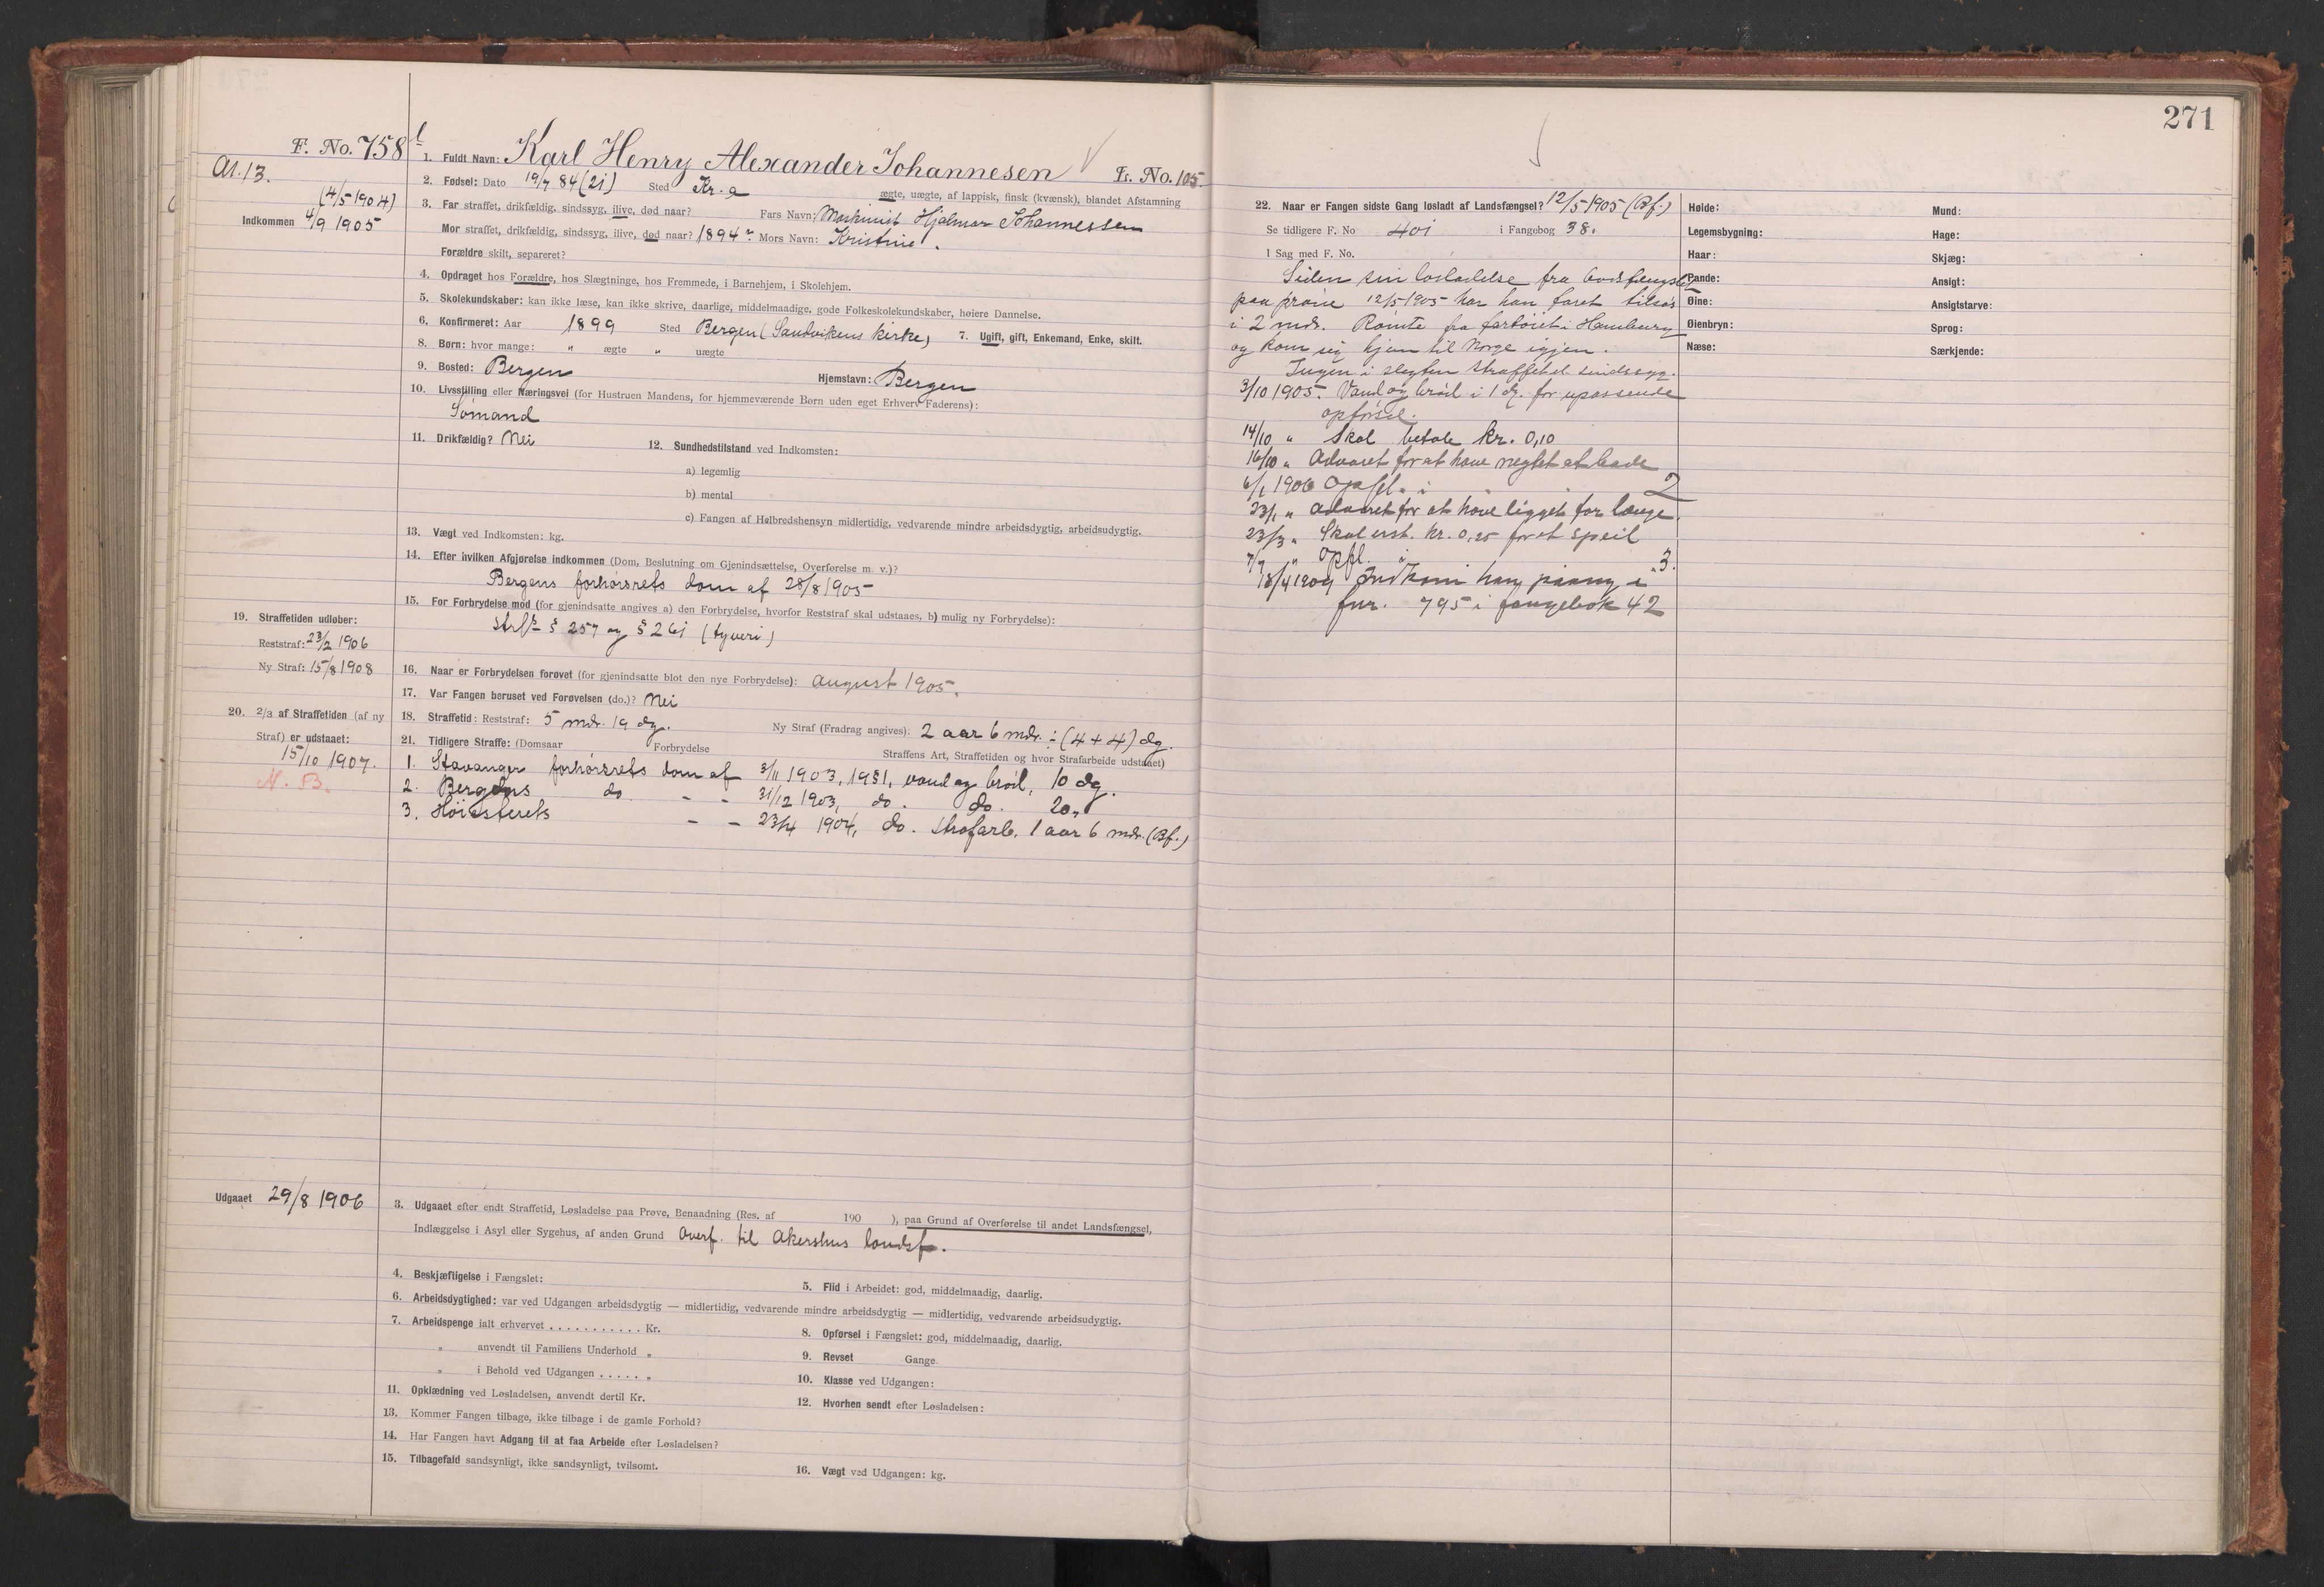 271
F. No. 758 b
At. 13.
(4/5 1904)
Indkommen 4/9 1905
1. Fuldt Navn: Karl Henry Alexander Johannesen
Fr. No. 105.
2. Fødsel: Dato 19/7 84 (21) Sted Kr.a
ægte, uægte, af lappisk, finsk (kvænsk), blandet Afstamning
3. Far straffet, drikfældig, sindssyg, ilive, død naar? Fars Navn: Maskinist Hjalmar Johannessen
Mor straffet, drikfældig, sindssyg, ilive, død naar? 1894. Mors Navn: Kristine.
Forældre skilt, separeret?
4. Opdraget hos Forældre, hos Slægtninge, hos Fremmede, i Barnehjem, i Skolehjem.
5. Skolekundskaber: kan ikke læse, kan ikke skrive, daarlige, middelmaadige, gode Folkeskolekundskaber, høiere Dannelse.
6. Konfirmeret: Aar 1899 Sted Bergen (Sandvikens Kirke) 7. Ugift, gift, Enkemand, Enke, skilt.
8. Børn: hvor mange: " ægte " uægte
9. Bosted: Bergen Hjemstavn: Bergen
10. Livsstilling eller Næringsvei (for Hustruen Mandens, for hjemmeværende Børn uden eget Erhverv Faderens):
Sømand
11. Drikfældig? Nei 12. Sundhedstilstand ved Indkomsten:
a) legemlig
b) mental
c) Fangen af Helbredshensyn midlertidig, vedvarende mindre arbeidsdygtig, arbeidsudygtig.
13. Vægt ved Indkomsten: kg.
14. Efter hvilken Afgjørelse indkommen (Dom, Beslutning om Gjenindsættelse, Overførelse m. v.)?
Bergens forhørsrets dom af 28/8 1905
15. For Forbrydelse mod (for gjenindsatte angives a) den Forbrydelse, hvorfor Reststraf skal udstaaes, b) mulig ny Forbrydelse):
Strl. § 257 og § 261 (tyveri)
19. Straffetiden udløber:
Reststraf: 23/2 1906
Ny Straf: 15/8 1908
16. Naar er Forbrydelsen forøvet (for gjenindsatte blot den nye Forbrydelse): august 1905.
17. Var Fangen beruset ved Forøvelsen (do.)? Nei
20. 2/3 af Straffetiden (af ny
Straf) er udstaaet:
15/10 1907.
N. B.
18. Straffetid: Reststraf: 5 mdr. 19 dg. Ny Straf (Fradrag angives): 2 aar 6 mdr. ÷ (4 + 4) dg.
21. Tidligere Straffe: (Domsaar Forbrydelse Straffens Art, Straffetiden og hvor Strafarbeide udstaaet)
1. Stavanger forhørsrets dom af 3/11 1903, 1931, vand og brød, 10 dg.
2. Bergens do - - 31/12 1903, do. do. 20 "
3. Høiesterets - - 23/4 1904, do. Strafarb. 1 aar 6 mdr. (Bf.)
Udgaaet 29/8 1906
3. Udgaaet efter endt Straffetid, Løsladelse paa Prøve, Benaadning (Res. af 190 ), paa Grund af Overførelse til andet Landsfængsel,
Indlæggelse i Asyl eller Sygehus, af anden Grund Overf. til Akershus landsf.
4. Beskjæftigelse i Fængslet:
5. Flid i Arbeidet: god, middelmaadig, daarlig.
6. Arbeidsdygtighed: var ved Udgangen arbeidsdygtig — midlertidig, vedvarende mindre arbeidsdygtig — midlertidig, vedvarende arbeidsudygtig.
7. Arbeidspenge ialt erhvervet . . . . . . . . . . . Kr.
8. Opførsel i Fængslet: god, middelmaadig, daarlig.
" anvendt til Familiens Underhold "
9. Revset Gange
" i Behold ved Udgangen . . . . . "
10. Klasse ved Udgangen:
11. Opklædning ved Løsladelsen, anvendt dertil Kr.
12. Hvorhen sendt efter Løsladelsen:
13. Kommer Fangen tilbage, ikke tilbage i de gamle Forhold?
14. Har Fangen havt Adgang til at faa Arbeide efter Løsladelsen?
15. Tilbagefald sandsynligt, ikke sandsynligt, tvilsomt.
16. Vægt ved Udgangen: kg.
22. Naar er Fangen sidste Gang løsladt af Landsfængsel? 12/5 1905 (Bf.)
Se tidligere F. No 401 i Fangebog 38.
I Sag med F. No.
Siden sin løsladelse fra bodsfengslet
paa prøve 12/5 1905 har han faret tilsøs
i 2 mdr. Rømte fra fartøiet i Hamburg
og kom sig hjem til Norge igjen.
Ingen i slegten straffet el. sindssyg.
3/10 1905. Vand og brød i 1 dg. for upassende
opførsel.
14/10 " Skal betale kr. 0,10
16/10 " Advaret for at have negtet at bade
6/1 1906 Opfl. i 2
23/1 " advaret for at have ligget for længe.
23/3 " Skal erst. kr. 0,25 for et speil
7/7 " Opfl. i 3.
18/4 1909 Indkom han paany i
fnr. 795 i fangebok 42
Høide:
Legemsbygning:
Haar:
Pande:
Øine:
Øienbryn:
Næse:
Mund:
Hage:
Skjæg:
Ansigt:
Ansigtstarve:
Sprog:
Særkjende: